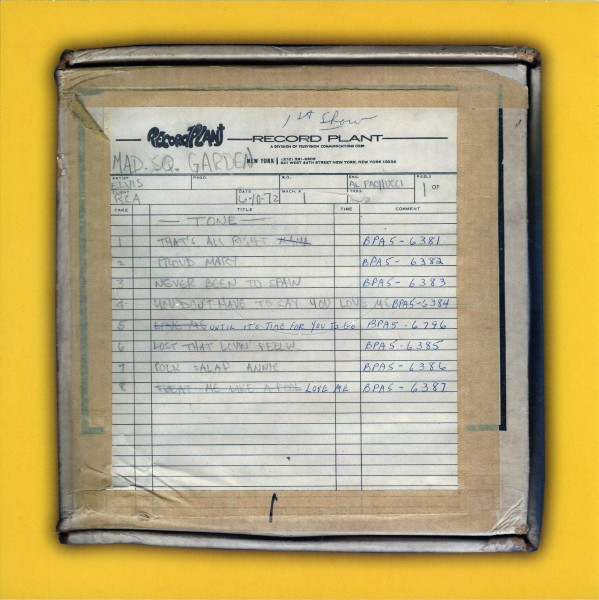 1ST SHOW
RECORD PLANT RECORD PLANT
A DIVISION OF TELEVISION COMMUNICATIONS CORP.
MAD. SQ. GARDEN NEW YORK (212) 581-6505
321 WEST 44TH STREET NEW YORK, NEW YORK 10036
ARTIST ELVIS PROD. S.O. ENG. AL PACHUCCI REELS 1 OF
CLIENT RCA DATE 6/10/72 MACH. # 1 TRKS.
TAKE TITLE TIME COMMENT
— TONE —
1 THAT'S ALL RIGHT BPA5-6381
2 PROUD MARY BPA5-6382
3 NEVER BEEN TO SPAIN BPA5-6383
4 YOU DON'T HAVE TO SAY YOU LOVE ME BPA5-6384
5 LOVE ME UNTIL IT'S TIME FOR YOU TO GO BPA5-6796
6 LOST THAT LOVIN' FEELIN BPA5-6385
7 POLK SALAD ANNIE BPA5-6386
8 TREAT ME LIKE A FOOL LOVE ME BPA5-6387